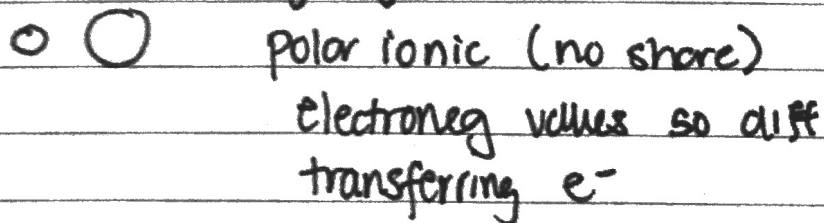 polar ionic (no share)
electroneg values so diff
transferring e⁻